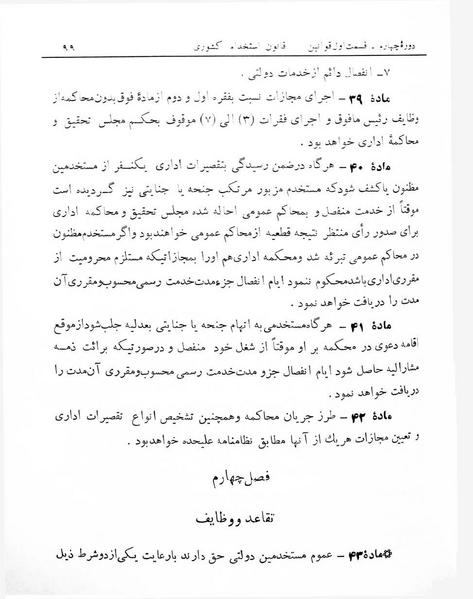 دورهٔ چهارم - قسمت اول قوانین قانون استخدام کشوری ۹۹
۷- انفصال دائم از خدمات دولتی .
مادهٔ ۳۹ - اجرای مجازات نسبت بفقره اول و دوم از مادهٔ فوق بدون محاکمه از
وظایف رئیس مافوق و اجرای فقرات (۳) الی (۷) موقوف بحکم مجلس تحقیق و
محاکمهٔ اداری خواهد بود .
مادهٔ ۴۰ - هر گاه در ضمن رسیدگی بتقصیرات اداری یکنفر از مستخدمین
مظنون یا کشف شود که مستخدم مزبور مرتکب جنحه یا جنایتی نیز گردیده است
موقتاً از خدمت منفصل و بمحاکم عمومی احاله شده مجلس تحقیق و محاکمه اداری
برای صدور رأی منتظر نتیجه قطعیه از محاکم عمومی خواهند بود و اگر مستخدم مظنون
در محاکم عمومی تبرئه شد ومحکمه اداری هم اورا بمجازاتیکه مستلزم محرومیت از
مقرری اداری باشد محکوم ننمود ایام انفصال جزء مدت خدمت رسمی محسوب و مقرری آن
مدت را دریافت خواهد نمود .
مادهٔ ۴۱ - هر گاه مستخدمی به اتهام جنحه یا جنایتی بعدلیه جلب شود از موقع
اقامه دعوی در محکمه بر او موقتاً از شغل خود منفصل و درصورتیکه برائت ذمـه
مشارالیه حاصل شود ایام انفصال جزو مدت خدمت رسمی محسوب و مقرری آن مدت را
دریافت خواهد نمود .
مادهٔ ۴۲ - طرز جریان محاکمه وهمچنین تشخیص انواع تقصیرات اداری و
و تعیین مجازات هر یك از آنها مطابق نظامنامه علیحده خواهد بود .
فصل چهارم
تقاعد و وظایف
❊مادهٔ ۴۳ - عموم مستخدمین دولتی حق دارند بارعایت یکی از دو شرط ذیل